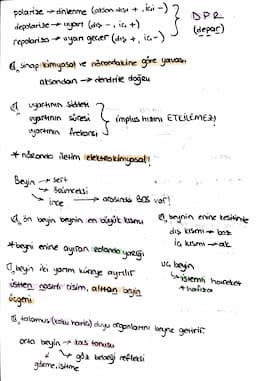 polarize → dinlenme (aksan dışı +, içi -)
depolarize → uyarı (dış -, iç +)
repolarize → uyarı geçer (dış +, iç -)
DPR
(depar)
sinaps kimyasal ve nörondakine göre yavaş.
aksondan → dendrite doğru
uyartının şiddeti
uyartının süresi
uyartının frekansı
implus hızını ETKİLEMEZ!
* nöronda iletim elektrokimyasal!
Beyin → sert
→ örümceksi
→ ince → arasında BOS var!
ön beyin beynin en büyük kısmı
* beyni enine ayıran rolando yarığı
beyin iki yarım küreye ayrılır
üstten nasırlı cisim, alttan beyin
üçgeni
beynin enine kesitinde
dış kısmı → boz
iç kısmı → ak
uç beyin
→ istemli hareket
+ hafıza
talamus (koku hariç) duyu organlarını beyne getirir.
orta beyin → kas tonusu
→ göz bebeği refleksi
görme, işitme